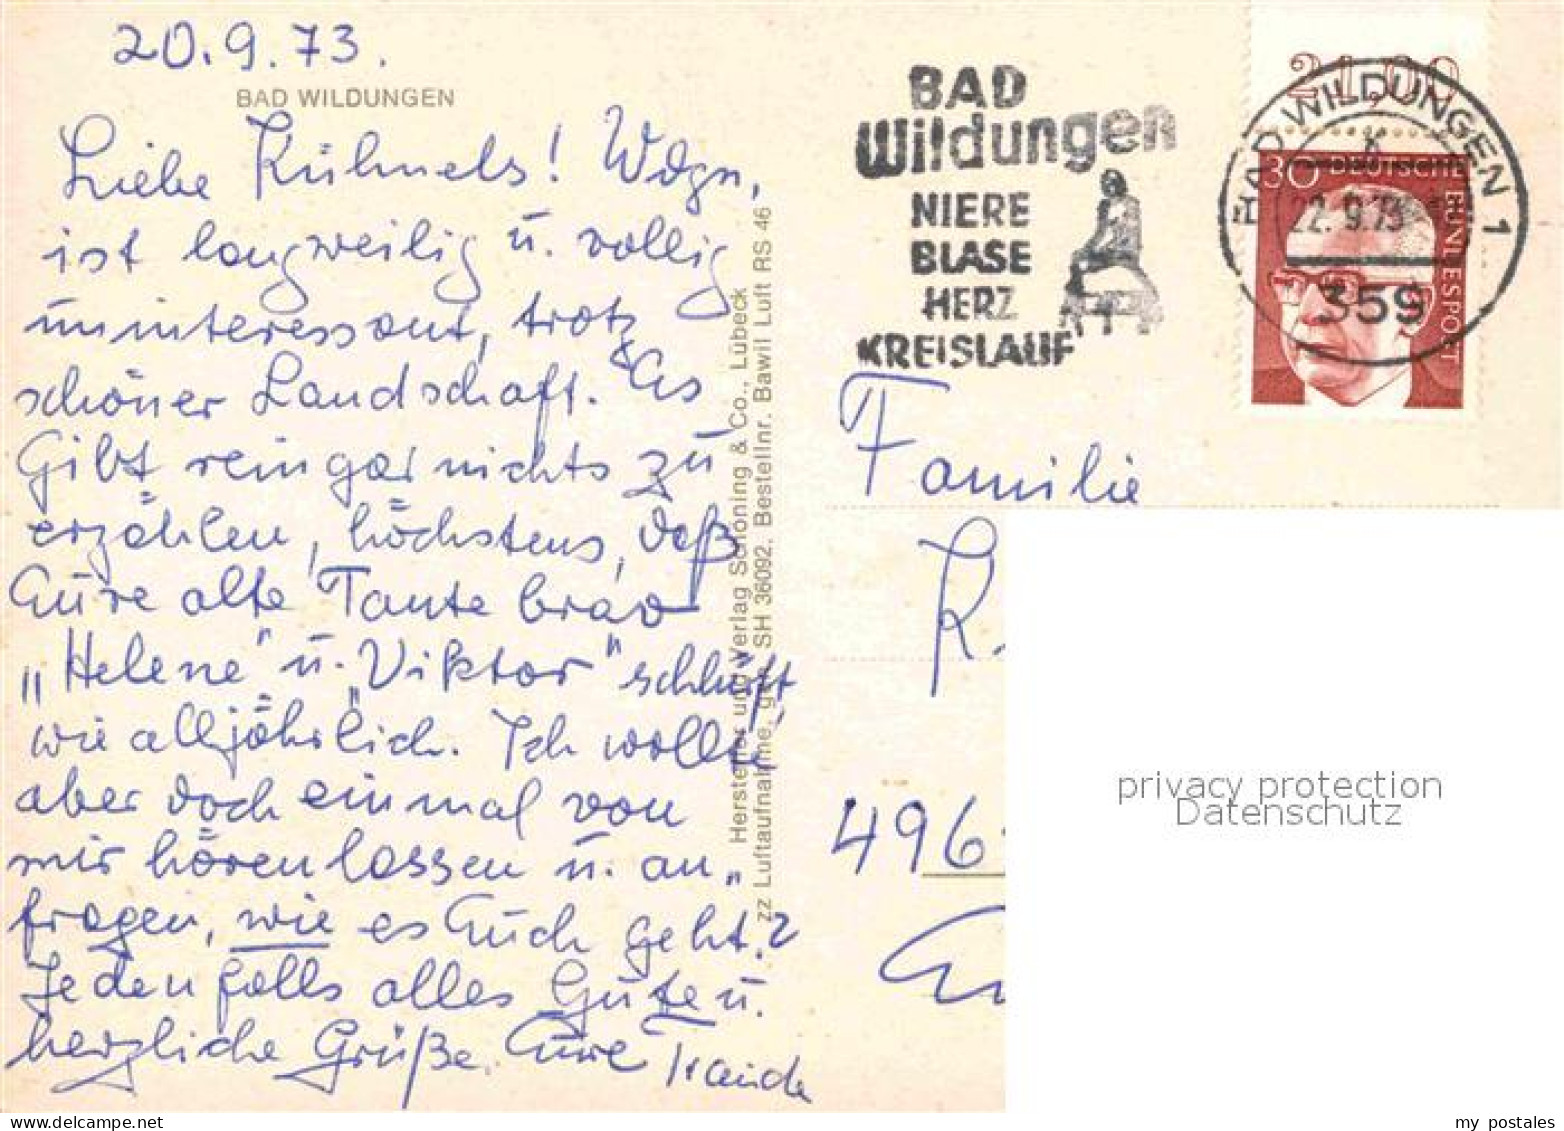 20.9.73.
BAD WILDUNGEN
Liebe Kühnels! Wdgn,
ist langweilig u. völlig
uninteressant, trotz
schöner Landschaft. Es
Gibt rein gar nichts zu
erzählen, höchstens, daß
Eure alte Tante brav
„Helene" u. „Viktor" schlürft
wie alljährlich. Ich wollte
aber doch einmal von
mir hören lassen u. an„
fragen, wie es Euch geht?
Jedenfalls alles Gute u.
herzliche Grüße. Eure
Hersteller und Verlag Schöning & Co., Lübeck
zz Luftaufnahme, gen. SH 36092, Bestellnr. Bawil Luft RS 46
BAD
Wildungen
NIERE
BLASE
HERZ
KREISLAUF
24,00
30 DEUTSCHE BUNDESPOST
BAD WILDUNGEN 1
22.-9.73
359
Familie
K.
496
privacy protection
Datenschutz
www.delcampe.net
my_postales